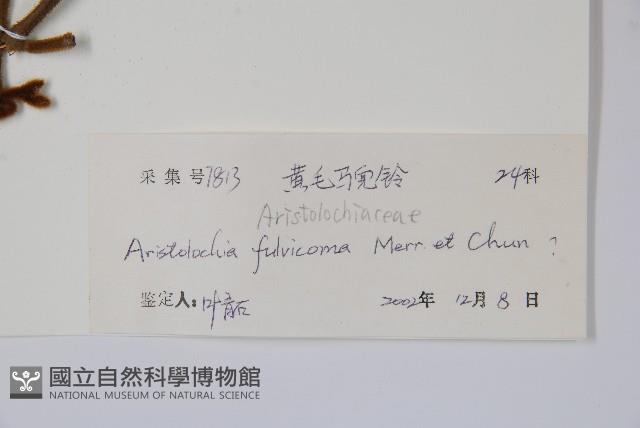 采集号 7813 黄毛马兜铃 24科
Aristolochiaceae
Aristolochia fulvicoma Merr. et Chun ?
鉴定人: 叶 2002年 12月 8日
國立自然科學博物館
NATIONAL MUSEUM OF NATURAL SCIENCE